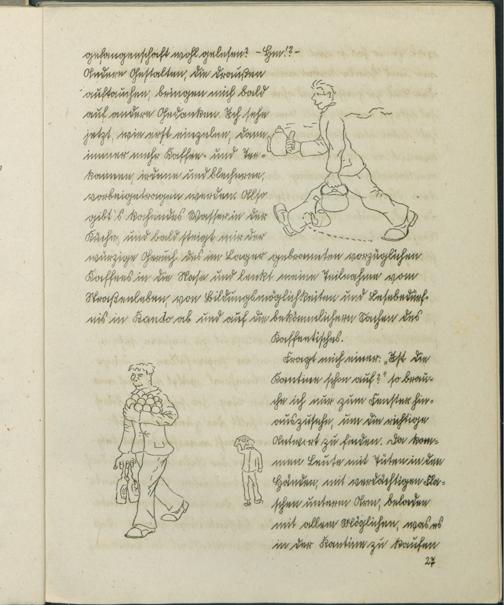 gefangenschaft wohl gelesen? – Hm!? –
Andere Gestalten, die draußen
auftauchen, bringen mich bald
auf andere Gedanken. Ich sehe
jetzt, wie erst einzelne, dann
immer mehr Kaffee- und Tee-
kannen, irdene und blecherne,
vorbeigetragen werden. Also
gibt's kochendes Wasser in der
Küche, und bald steigt mir der
würzige Geruch des im Lager gebrannten vorzüglichen
Kaffees in die Nase und lenkt meine Teilnahme vom
Straßenleben, von Bildungsmöglichkeiten und Lesebedürf-
nis in Bando ab und auf die bekömmlichern Sachen des
Kaffeetisches.
Fragt mich einer: „Ist die
Kantine schon auf?" so brau-
che ich nur zum Fenster hin-
auszusehen, um die richtige
Antwort zu finden. Da kom-
men Leute mit Tüten in den
Händen, mit verdächtigen Fla-
schen unterm Arm, beladen
mit allem Möglichen, was es
in der Kantine zu kaufen
27